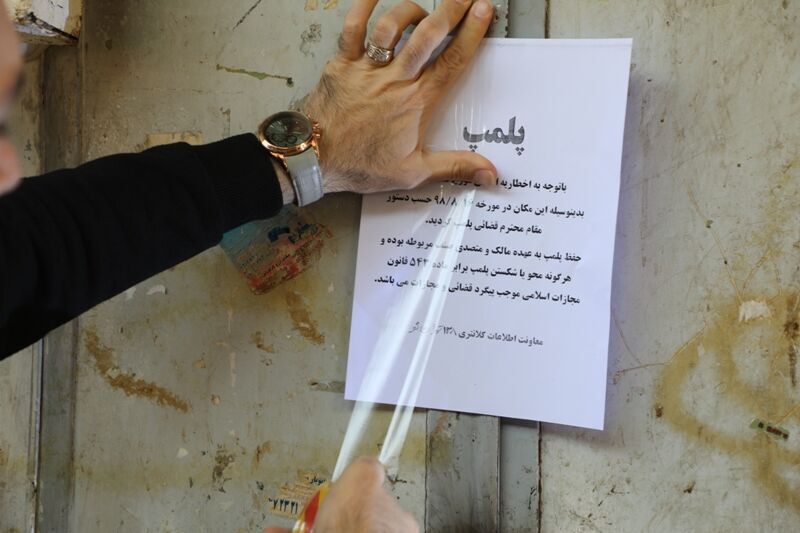 پلمپ
باتوجه به اخطاریه
بدینوسیله این مکان در مورخه ۹۸/۸/ حسب دستور
مقام محترم قضائی پلمپ گردید.
حفظ پلمپ به عهده مالک و متصدی مربوطه بوده و
هرگونه محو یا شکستن پلمپ برابر ماده ۵۴۳ قانون
مجازات اسلامی موجب پیگرد قضائی و مجازات می باشد.
معاونت اطلاعات کلانتری ۱۳۸